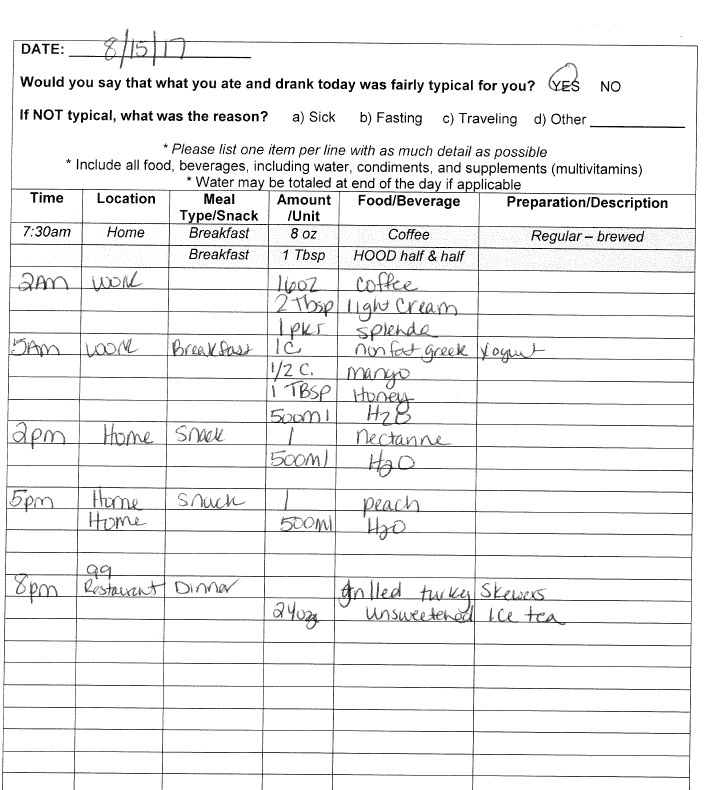 DATE: 8/15/17
Would you say that what you ate and drank today was fairly typical for you? YES NO
If NOT typical, what was the reason? a) Sick b) Fasting c) Traveling d) Other
* Please list one item per line with as much detail as possible
* Include all food, beverages, including water, condiments, and supplements (multivitamins)
* Water may be totaled at end of the day if applicable
Time Location Meal Type/Snack Amount /Unit Food/Beverage Preparation/Description
7:30am Home Breakfast 8 oz Coffee Regular – brewed
Breakfast 1 Tbsp HOOD half & half
2AM WORK 16oz Coffee
2 Tbsp light Cream
1 pkt splenda
5AM WORK Breakfast 1C nonfat greek Yogurt
1/2 C. Mango
1 TBSP Honey
500ml H2O
2pm Home Snack 1 Nectarine
500ml H2O
5pm Home Snack 1 peach
Home 500ml H2O
99
8pm Restaurant Dinner grilled turky Skewers
24ozs Unsweetened Ice tea